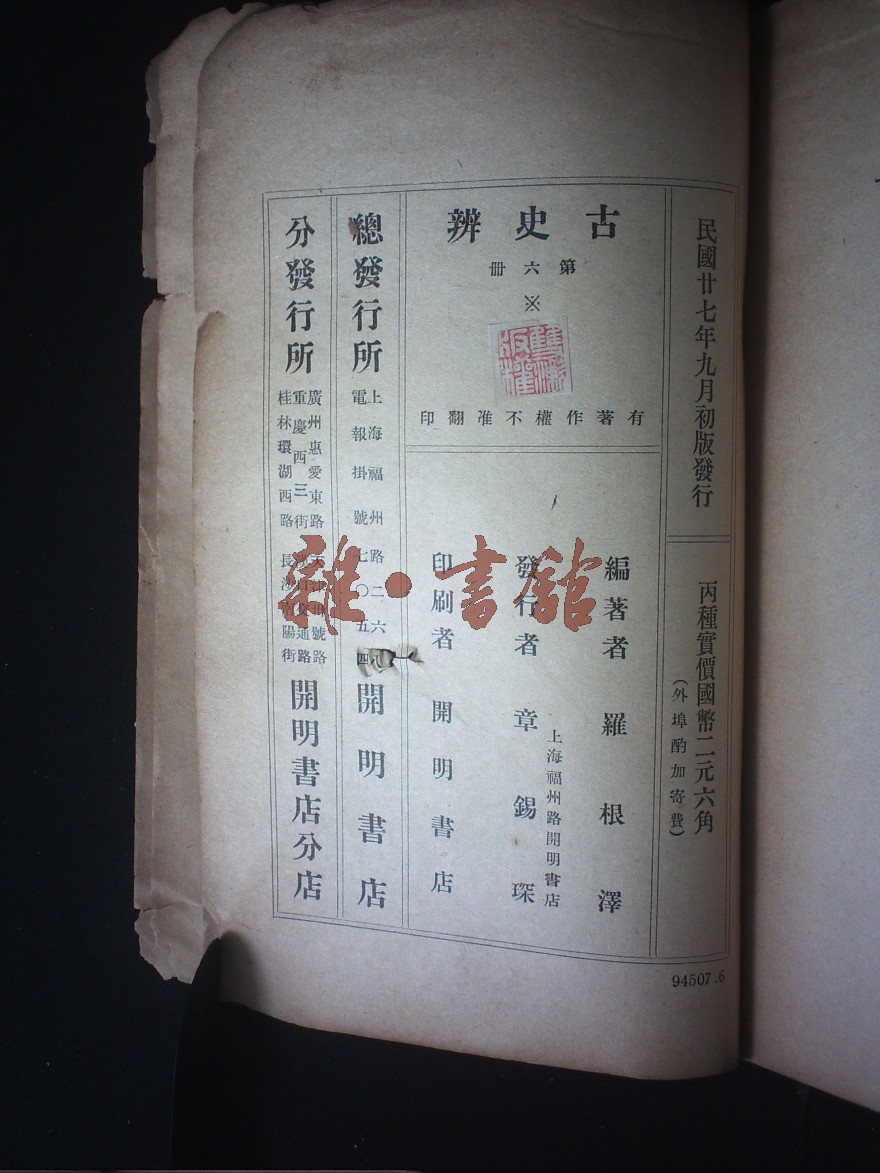 民國廿七年九月初版發行
丙種實價國幣二元六角
（外埠酌加寄費）
古史辨
第六册
※
有著作權不准翻印
編著者 羅根澤
發行者 章錫琛
上海福州路開明書店
印刷者 開明書店
總發行所
上海福州路二六八
電報掛號七〇五四
開明書店
分發行所
廣州惠愛東路
重慶西三街
桂林環湖西路
長沙南陽街
開明書店分店
94507.6
雜·書館